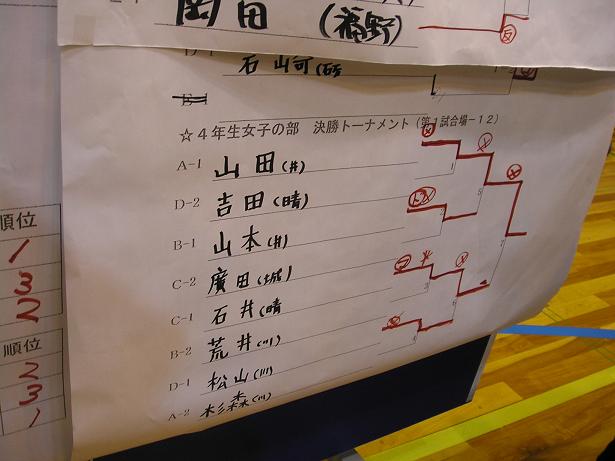 岡田 (福野)
D-1 石崎(砺
E-1
☆4年生女子の部 決勝トーナメント(第1試合場-12)
A-1 山田(井)
D-2 吉田(晴)
B-1 山本(井)
C-2 廣田(城)
C-1 石井(晴
B-2 荒井(川)
D-1 松山(川)
A-2 杉森(川)
順位
1
3
2
順位
2
3
1